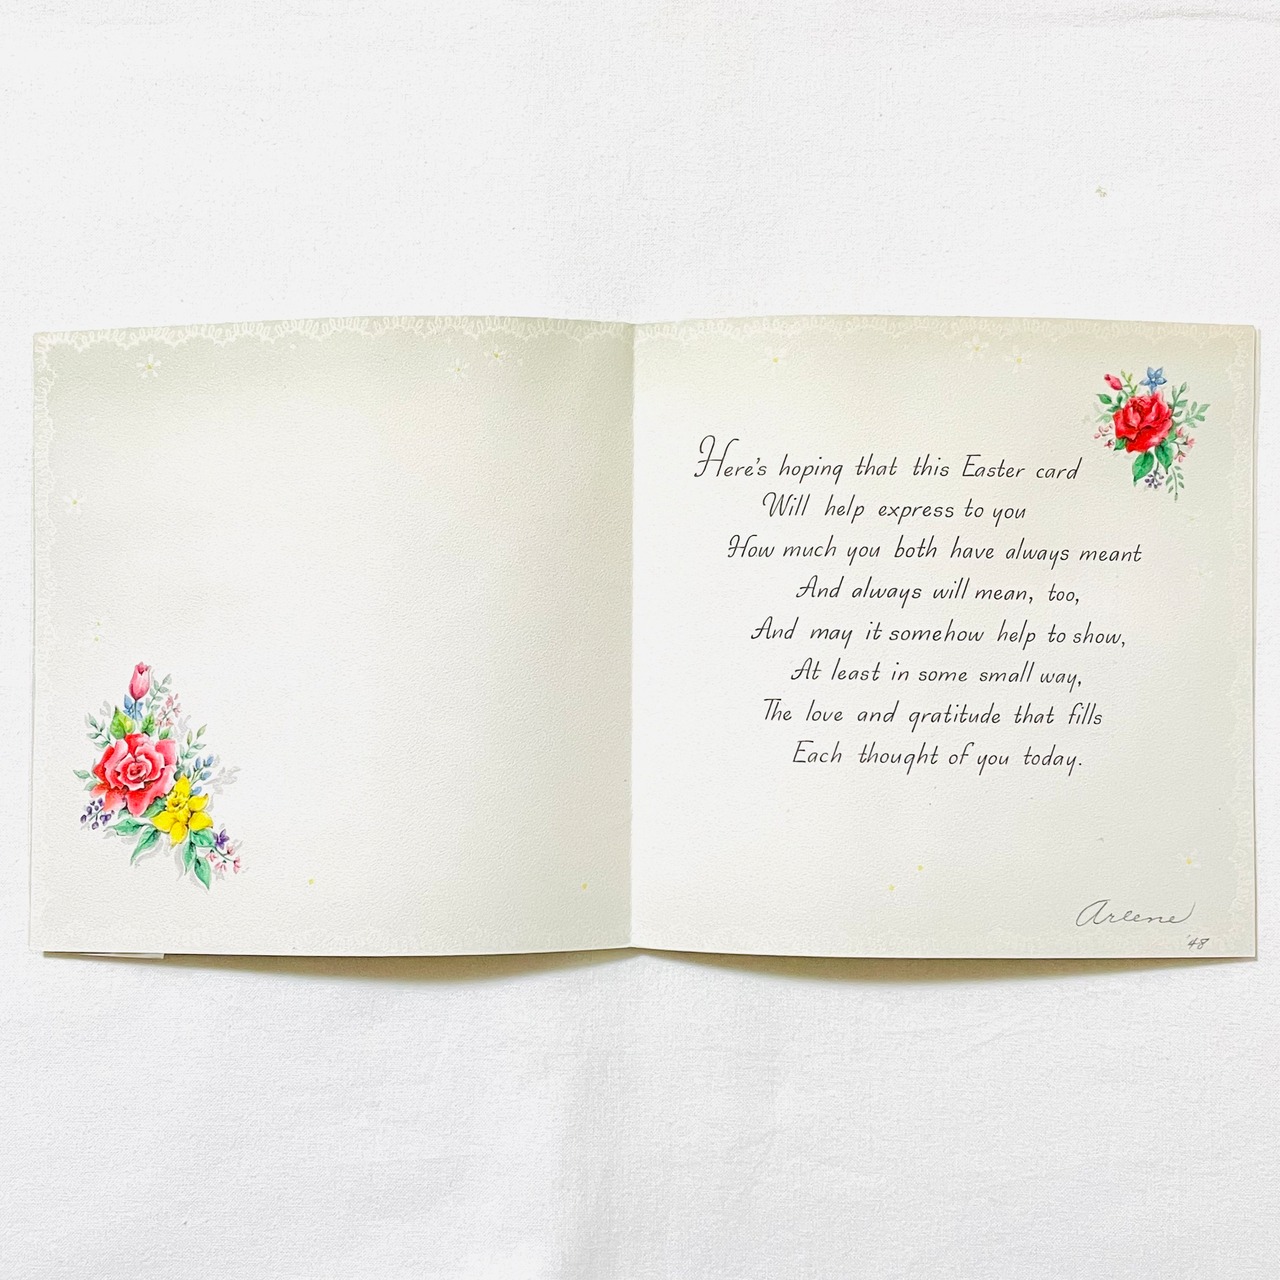 Here's hoping that this Easter card
Will help express to you
How much you both have always meant
And always will mean, too,
And may it somehow help to show,
At least in some small way,
The love and gratitude that fills
Each thought of you today.
Arlene
'48